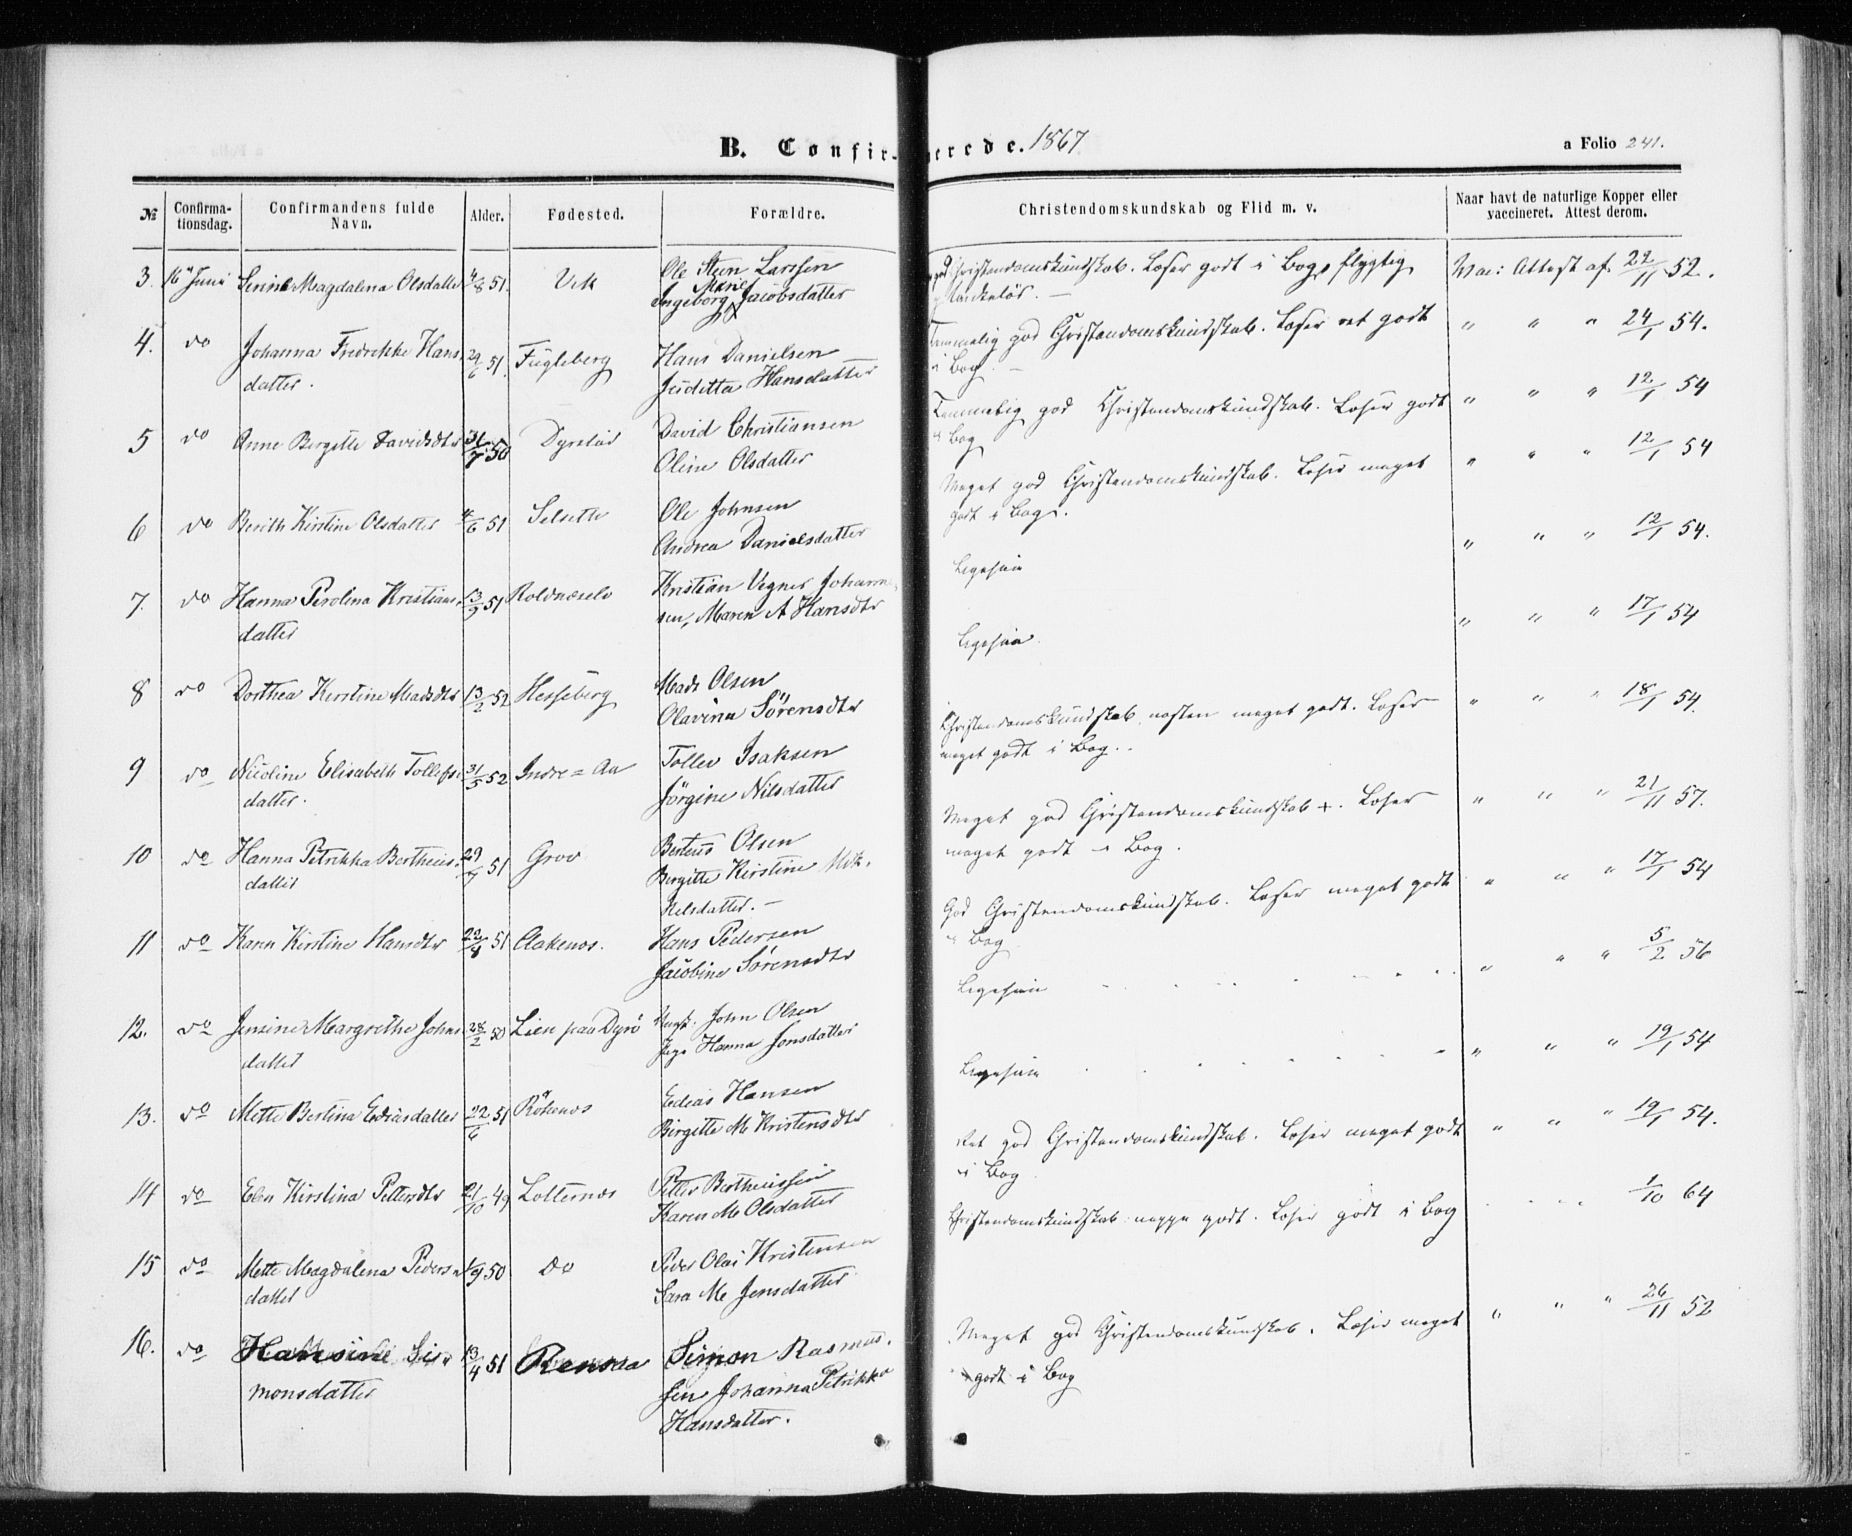 B. Confirmerede. 1867
a Folio 241.
№ Confirmationsdag. Confirmandens fulde Navn. Alder. Fødested. Forældre. Christendomskundskab og Flid m. v. Naar havt de naturlige Kopper eller vaccineret. Attest derom.
3. 16 Juni Serine Magdalena Olsdatter 4/8 51. Vik Ole Steen Larssen god Christendomskundskab. Læser godt i Bog, flygtig Vac: Attest af 22/11 52.
Ingeborg Marie Jacobsdatter
4. do Johanna Fredrikke Hans- 29/6 51. Fugleberg Hans Danielsen Temmelig god Christendomskundskab. Læser ret godt " " " 24/1 54.
datter. Juditta Hansdatter i Bog. —
5 do Anne Bergitte Davidsdtr 31/7 50 Dyrstad David Christiansen Temmelig god Christendomskundskab. Læser godt " " " 12/1 54
Oline Olsdatter i Bog
6 do Berith Kirstine Olsdatter 4/6 51 Selseth Ole Johnsen Meget god Christendomskundskab. Læser meget " " " 12/1 54
Andrea Danielsdatter godt i Bog.
7. do Hanna Perolina Kristians- 13/9 51 Roldnæselv Kristian Vegner Johann- Ligesaa " " " 12/1 54.
datter sen, Maren A Hansdtr
8 do Dorthea Kirstine Madsdtr 13/2 52 Hesseberg Mads Olsen Ligesaa " " " 17/1 54
Olavina Sörensdtr
9 do Nicoline Elisabeth Tollefs- 31/5 52 Indre=Aa Tollev Isaksen Christendomskundskab næsten meget godt. Læser " " " 18/1 54
datter. Jörgine Nilsdatter meget godt i Bog.
10 do Hanna Petrikka Bertheus- 29/7 51 Grov Berteus Olsen Meget god Christendomskundskab +. Læser " " " 21/11 57.
datter Bergitte Kirstine Mik- meget godt i Bog.
kelsdatter. —
11 do Karen Kirstine Hansdtr 22/8 51 Hans Pedersen God Christendomskundskab. Læser meget godt " " " 17/1 54
Jacobine Sörensdtr i Bog
12. do Jensine Margrethe Johns- 28/2 50 Lien paa Dyrö John Olsen Ligesaa " " " 5/2 56
datter Hanna Jonsdatter
13. do Mette Bertina Ediasdatter 22/6 51 Rökenes Edias Hansen Ligesaa " " " 19/1 54
Birgitte M Kristensdtr
14 do Elen Kirstina Pettersdtr 21/10 49 Lotternes Petter Bertheussen Ret god Christendomskundskab. Læser meget godt " " " 19/1 54.
Karen M Olsdatter i Bog
15 do Mette Magdalena Peders- 1/9 50 Do Peder Olai Kristensen Christendomskundskab neppe godt. Læser godt i Bog 1/10 64
datter Sara M Jensdatter
16. do Hansine Si- 13/4 51 Rensaa Simon Rasmus- Meget god Christendomskundskab. Læser meget " " " 26/11 52
monsdatter sen Johanna Petrikka godt i Bog
Hansdatter.